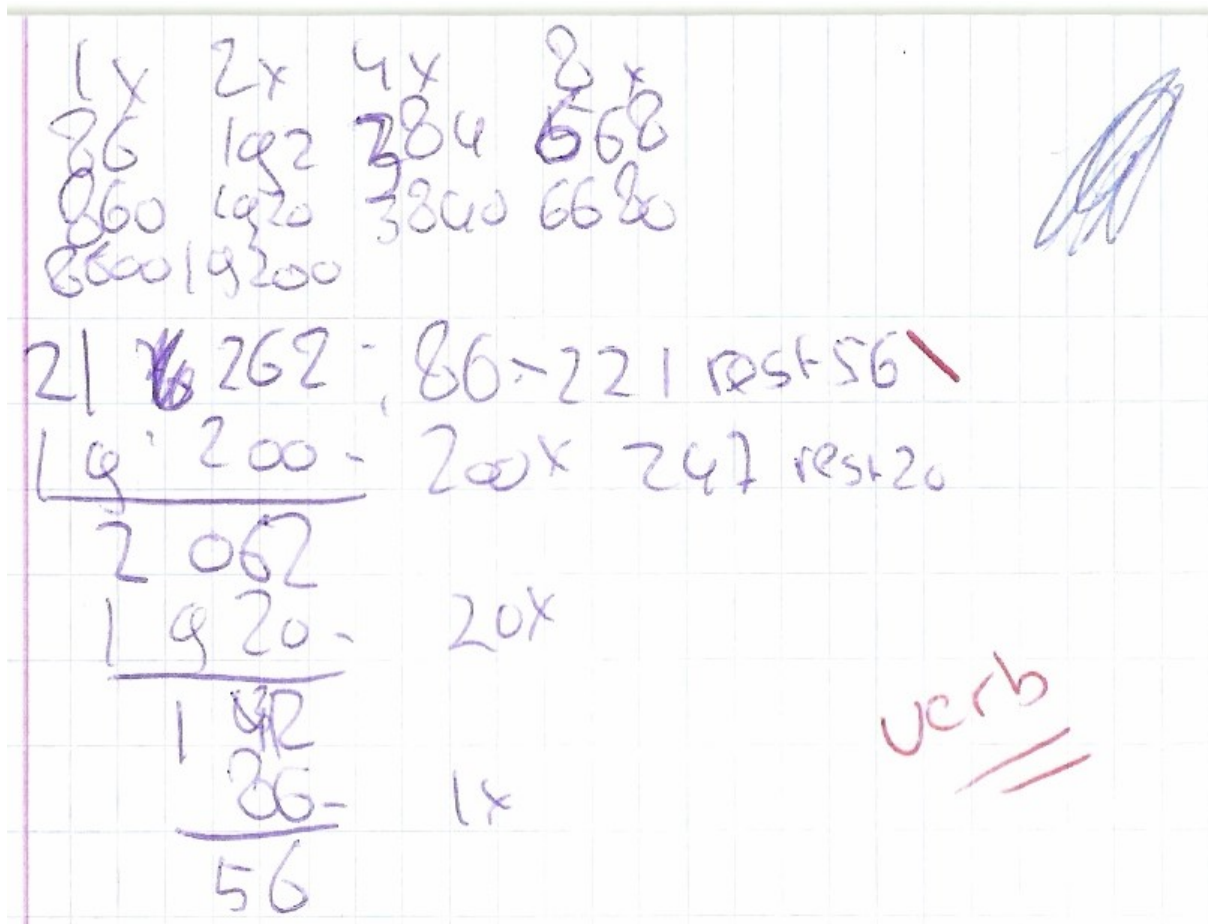 1x 2x 4x 8x
86 192 384 668
860 1920 3840 6680
8600 19200
21 262 : 86 = 221 rest 56
19 200 - 200x 247 rest 20
2 062
1 920 - 20x
142
86 - 1x
56
verb